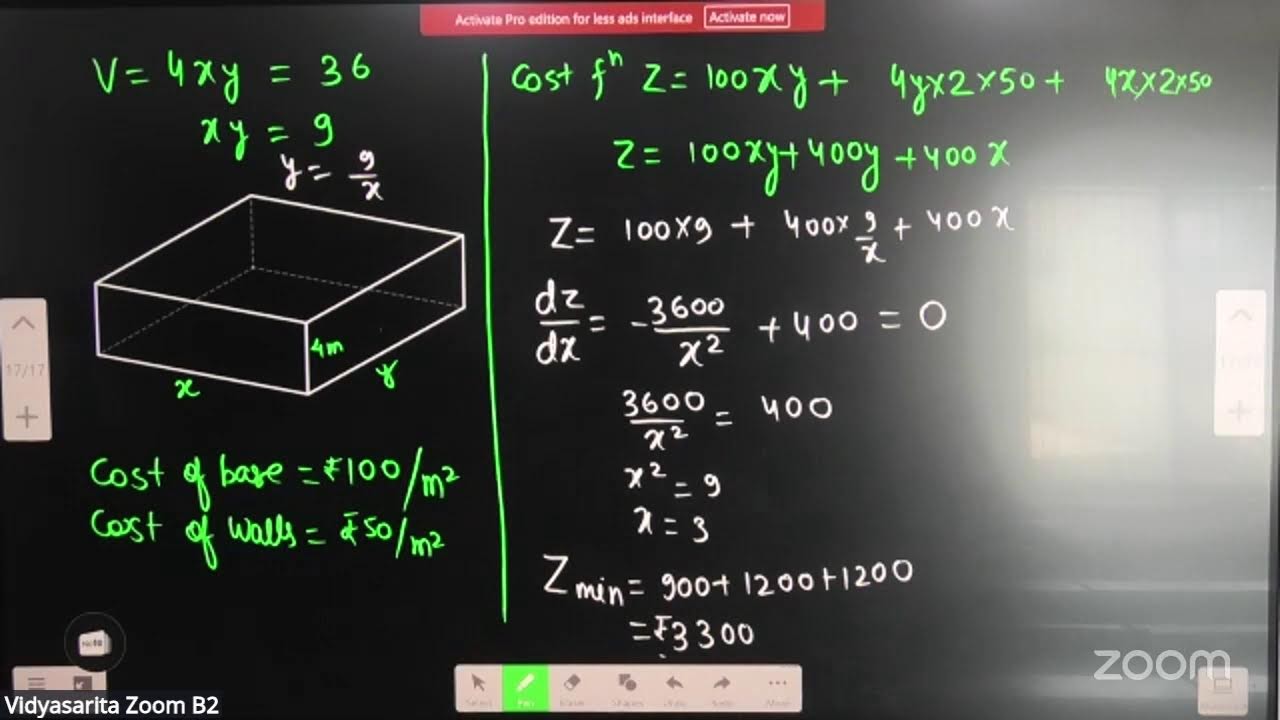 Activate Pro edition for less ads interface Activate now
V = 4xy = 36
xy = 9
y = 9/x
4m
x
y
Cost of base = ₹100/m²
Cost of walls = ₹50/m²
Cost fⁿ Z = 100xy + 4y×2×50 + 4x×2×50
Z = 100xy + 400y + 400x
Z = 100×9 + 400×9/x + 400x
dz/dx = -3600/x² + 400 = 0
3600/x² = 400
x² = 9
x = 3
Zmin = 900 + 1200 + 1200
= ₹3300
17/17
zoom
Vidyasarita Zoom B2